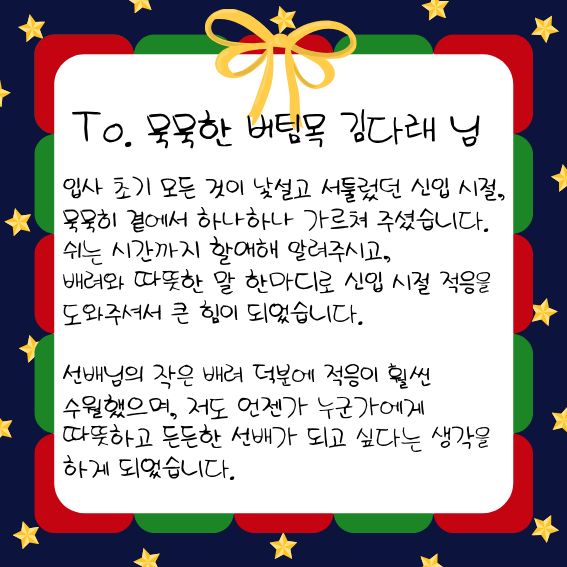 To. 묵묵한 버팀목 김다래 님
입사 초기 모든 것이 낯설고 서툴렀던 신입 시절,
묵묵히 곁에서 하나하나 가르쳐 주셨습니다.
쉬는 시간까지 할애해 알려주시고,
배려와 따뜻한 말 한마디로 신입 시절 적응을
도와주셔서 큰 힘이 되었습니다.
선배님의 작은 배려 덕분에 적응이 훨씬
수월했으며, 저도 언젠가 누군가에게
따뜻하고 든든한 선배가 되고 싶다는 생각을
하게 되었습니다.